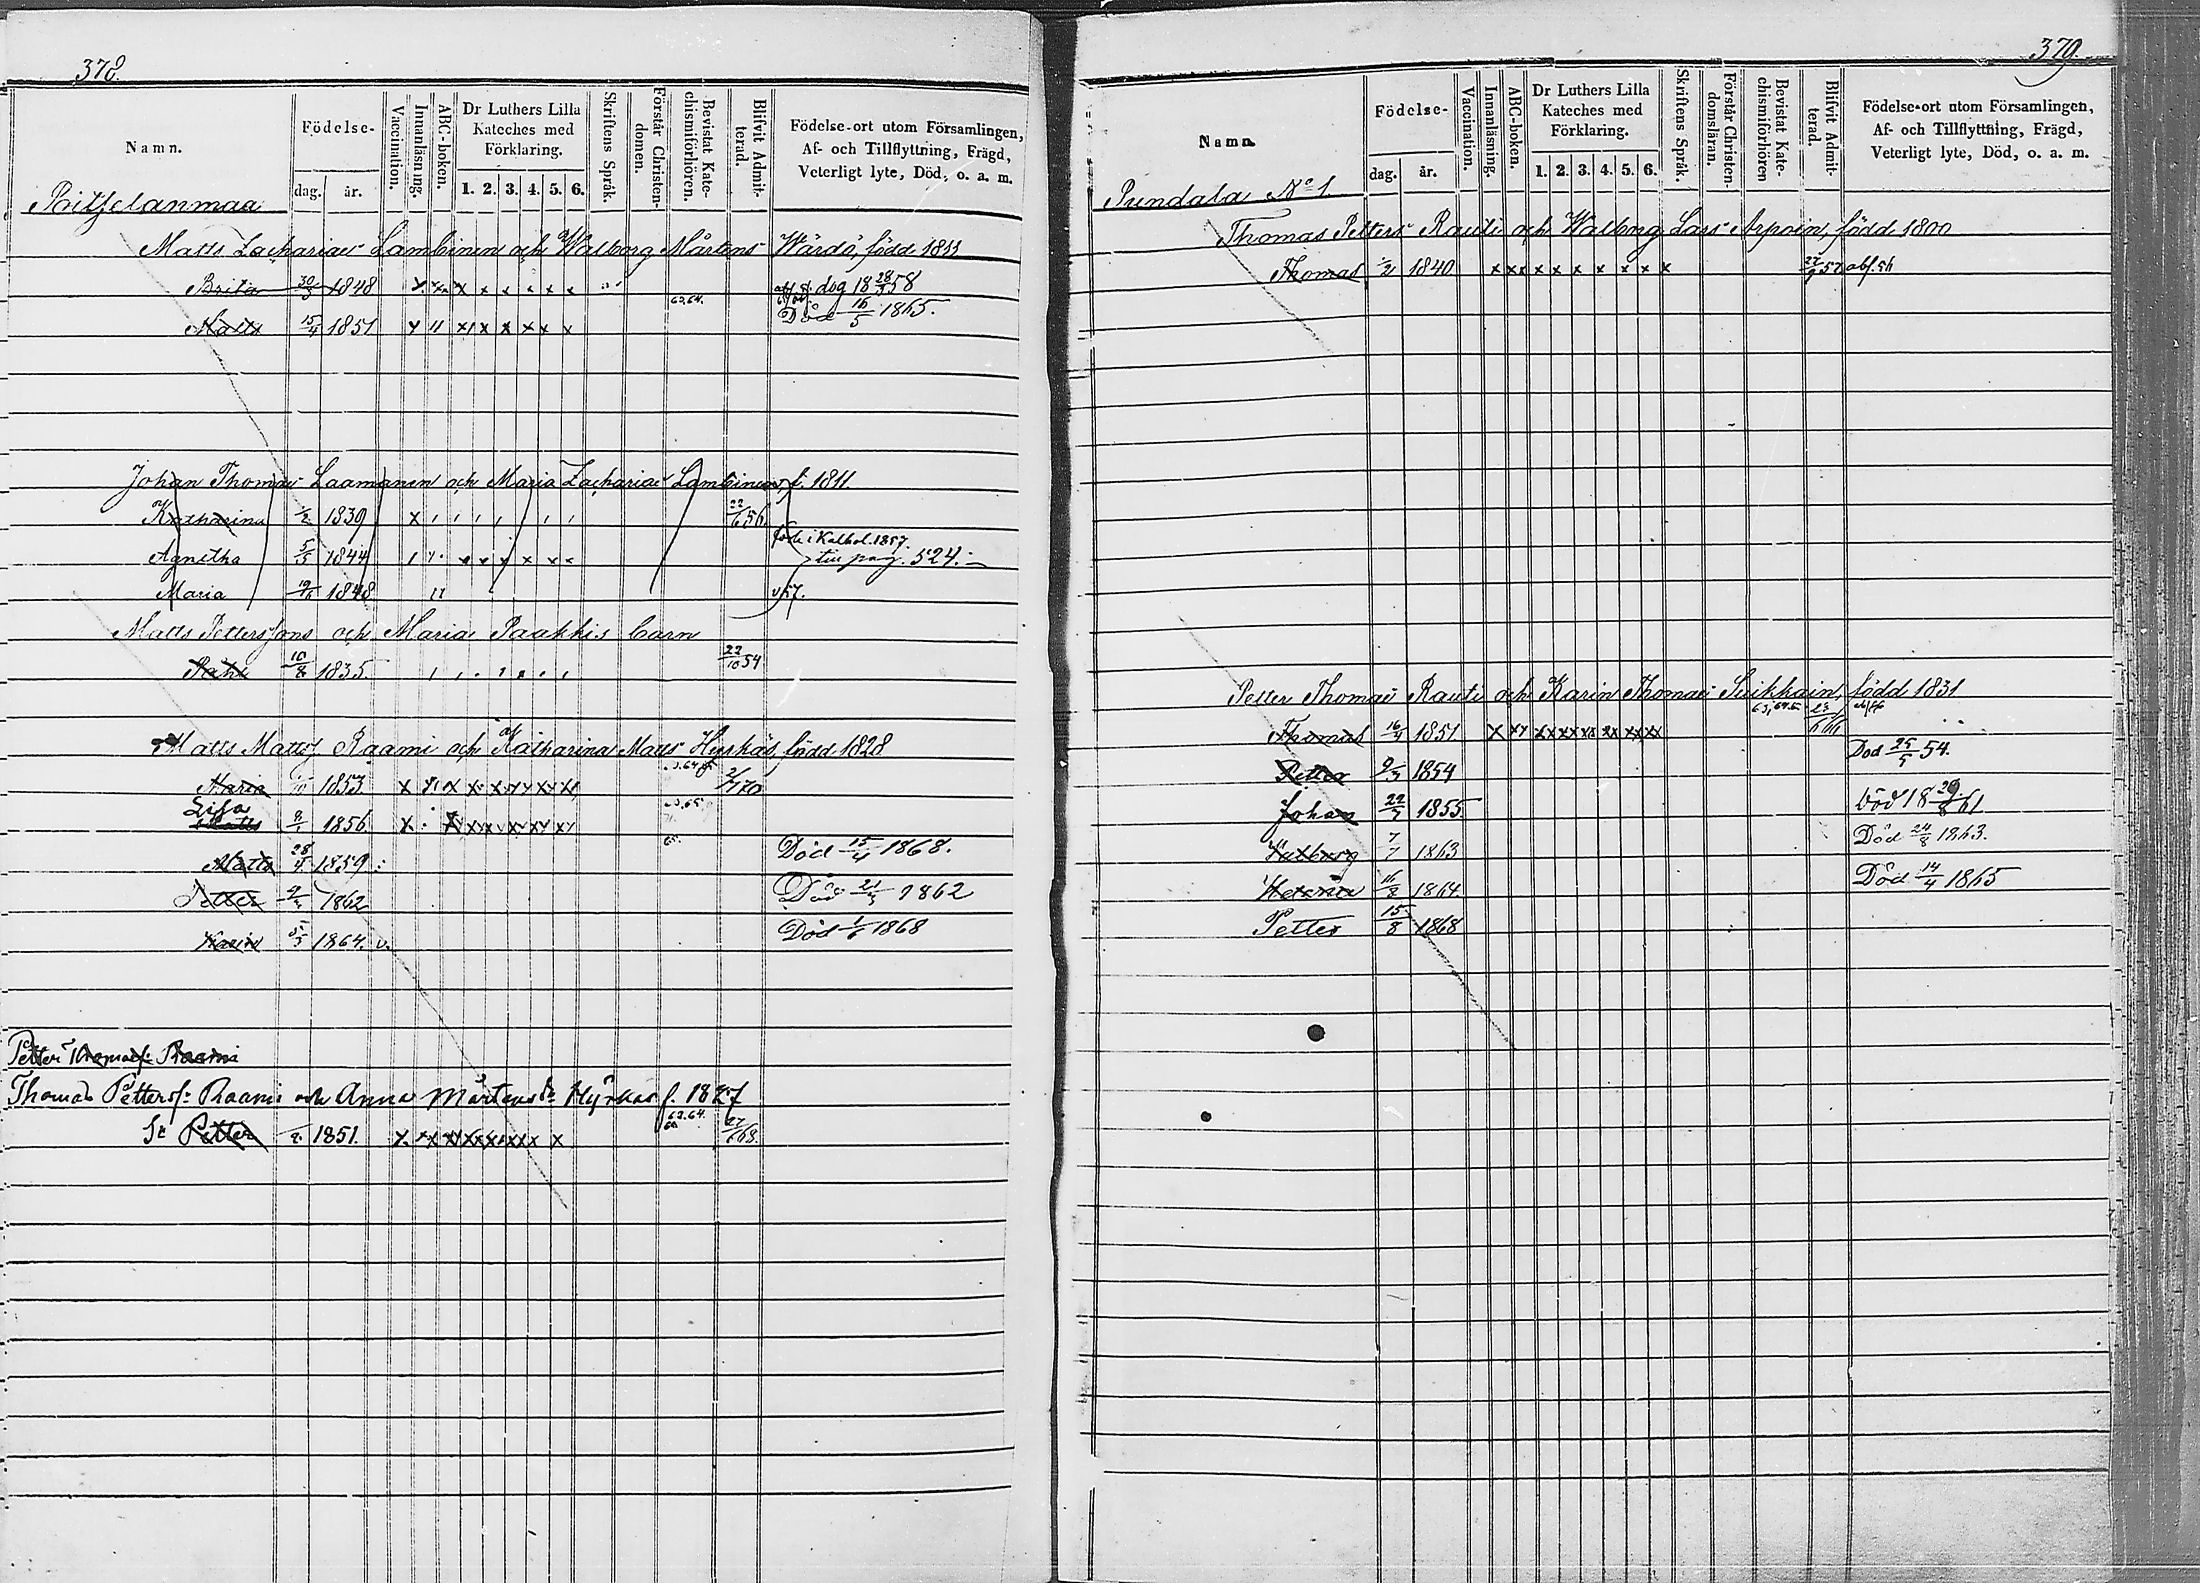 378.
Namn.
Födelse-
dag. år.
Vaccination.
Innanläsning.
ABC-boken.
Dr Luthers Lilla
Kateches med
Förklaring.
1. 2. 3. 4. 5. 6.
Skriftens Språk.
Förstår Christen-
domen.
Bevistat Kate-
chismiförhören.
Blifvit Admit-
terad.
Födelse-ort utom Församlingen,
Af- och Tillflyttning, Frägd,
Veterligt lyte, Död, o. a. m.
Matts Zacharias Lambinen och Walborg Mårtens Wårdö, född 1811
Brita 30/3 1848 dog 18 28/3 58
Matts 15/4 1851 63.64. Död 16/5 1865.
Johan Thomas Laamanen och Maria Zacharias Lambinen f. 1811
Katharina 1/2 1839 22/6 56.
Agnetha 5/5 1844 pag. 524.
Maria 19/6 1848
Matts Petterssons och Maria Paakkis barn
10/8 1835. 22/10 54
Matts Matts Raami och Katharina Matts Hyrkäs, född 1828
Maria 1853. 70
Lisa
Matts 8/1 1856
Matts 28/4 1859 Död 15/4 1868.
Petter 1862 Död 21/3 1862
Karin 5/3 1864. v. Död 1/6 1868
Petter Thomass: Raami
Thomas Petters: Raami och Anna Mårtens dr Hyrkäs f. 1827
Sn Petter 1851. 63.64. 68.
379.
Namn.
Födelse-
dag. år.
Vaccination.
Innanläsning.
ABC-boken.
Dr Luthers Lilla
Kateches med
Förklaring.
1. 2. 3. 4. 5. 6.
Skriftens Språk.
Förstår Christen-
domsläran.
Bevistat Kate-
chismiförhören
Blifvit Admit-
terad.
Födelse-ort utom Församlingen,
Af- och Tillflyttning, Frägd,
Veterligt lyte, Död, o. a. m.
Pundala No 1.
Thomas Petters Rauti och Walborg Lars Arpoin, född 1800
Thomas 1/2 1840
Petter Thomas Rauti och Karin Thomas Suikkain, född 1831
Thomas 16/4 1851
Petter 9/3 1854 Död 25/5 54.
Johan 22/7 1855 Död 18 29/8 61
Walborg 7/7 1863 Död 24/8 1863.
Helena 16/8 1864. Död 14/4 1865
Petter 15/8 1868